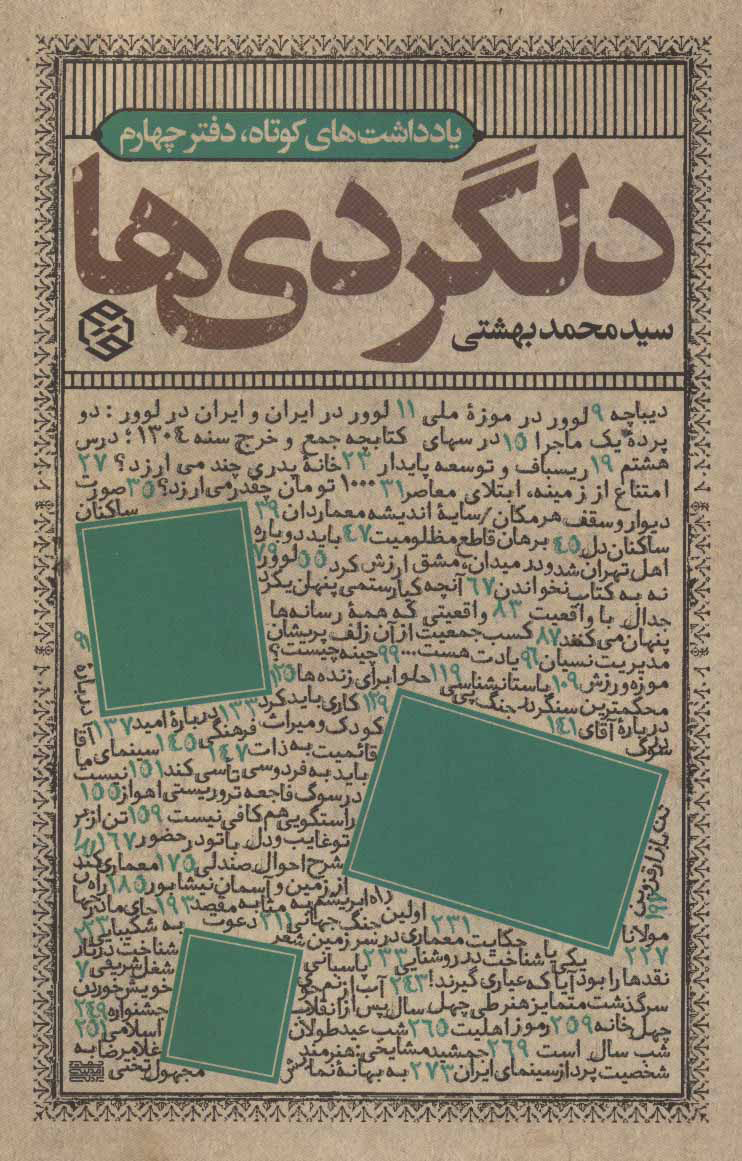 یادداشت‌های کوتاه، دفتر چهارم
دلگردی‌ها
سید محمد بهشتی
دیباچه ۹ لوور در موزهٔ ملی ۱۱ لوور در ایران و ایران در لوور : دو
پردهٔ یک ماجرا ۱۵ درسهای کتابچه جمع و خرج سنه ۱۳۰٤؛ درس
هشتم ۱۹ ریسباف و توسعه پایدار ۲۳ خانهٔ پدری چند می ارزد؟ ۲۷
امتناع از زمینه، ابتلای معاصر ۳۱ ۱۰۰۰ تومان چقدر می ارزد؟ ۳۵ صورت
دیوار و سقف هر مکان / سایهٔ اندیشه معماردان ۳۹ ساکنان
ساکنان دل ٤۵ برهان قاطع مظلومیت ٤۷ باید دوباره
اهل تهران شد و در میدان، مشق ارزش کرد ۵۵ لوور
نه به کتاب نخواندن ۶۷ آنچه کیارستمی پنهان نکرد ۷۹
جدال با واقعیت ۸۳ واقعیتی که همهٔ رسانه‌ها
پنهان می کنند ۸۷ کسب جمعیت از آن زلف پریشان
مدیریت نسیان ۹۶ یادت هست... ۹۹ چینه چیست؟
موزه ورزش ۱۰۹ باستانشناسی ۱۱۹ حلوا برای زنده ها ۱۲۵
محکمترین سنگر در جنگ پی ۱۲۹ کاری باید کرد ۱۳۳ دربارهٔ امید ۱۳۷
دربارهٔ آقای ۱٤۱ کودک و میراث فرهنگی ۱٤۵ سینمای ما
سوگ قائمیت به ذات ۱٤۷
باید به فردوسی تأسی کند ۱۵۱ نیست
در سوگ فاجعه تروریستی اهواز ۱۵۵
راستگویی هم کافی نیست ۱۵۹ تن از بر
تو غایب و دل با تو در حضور ۱۶۷
شرح احوال صندلی ۱۷۵ معماری کند
از زمین و آسمان نیشابور ۱۸۵ راه
راه ابریشم به مثابه مقصد ۱۹۳ جای مادر
اولین جنگ جهانی ۲۱۱ دعوت به شکیبایی ۲۲۳
مولانا ۲۳۱ حکایت معماری در سرزمین شعر
۲۲۷ یکی یا شناخت در روشنایی ۲۳۳ پاسبانی شناخت دربار
نقدها را بود آیا که عیاری گیرند! ۲٤۳ آب از نم جو شغل شریفی
سرگذشت متمایز هنر طی چهل سال پس از انقلاب خویش خوردن
چهل خانه ۲۵۹ رموز اهلیت ۲۶۵ شب عید طولان جشنواره ۲٤۹
شب سال است ۲۶۹ جمشید مشایخی: هنرمند اسلامی ۲۵۱
شخصیت پرداز سینمای ایران ۲۷۳ به بهانهٔ نمایش غلامرضا به
مجهول تختی